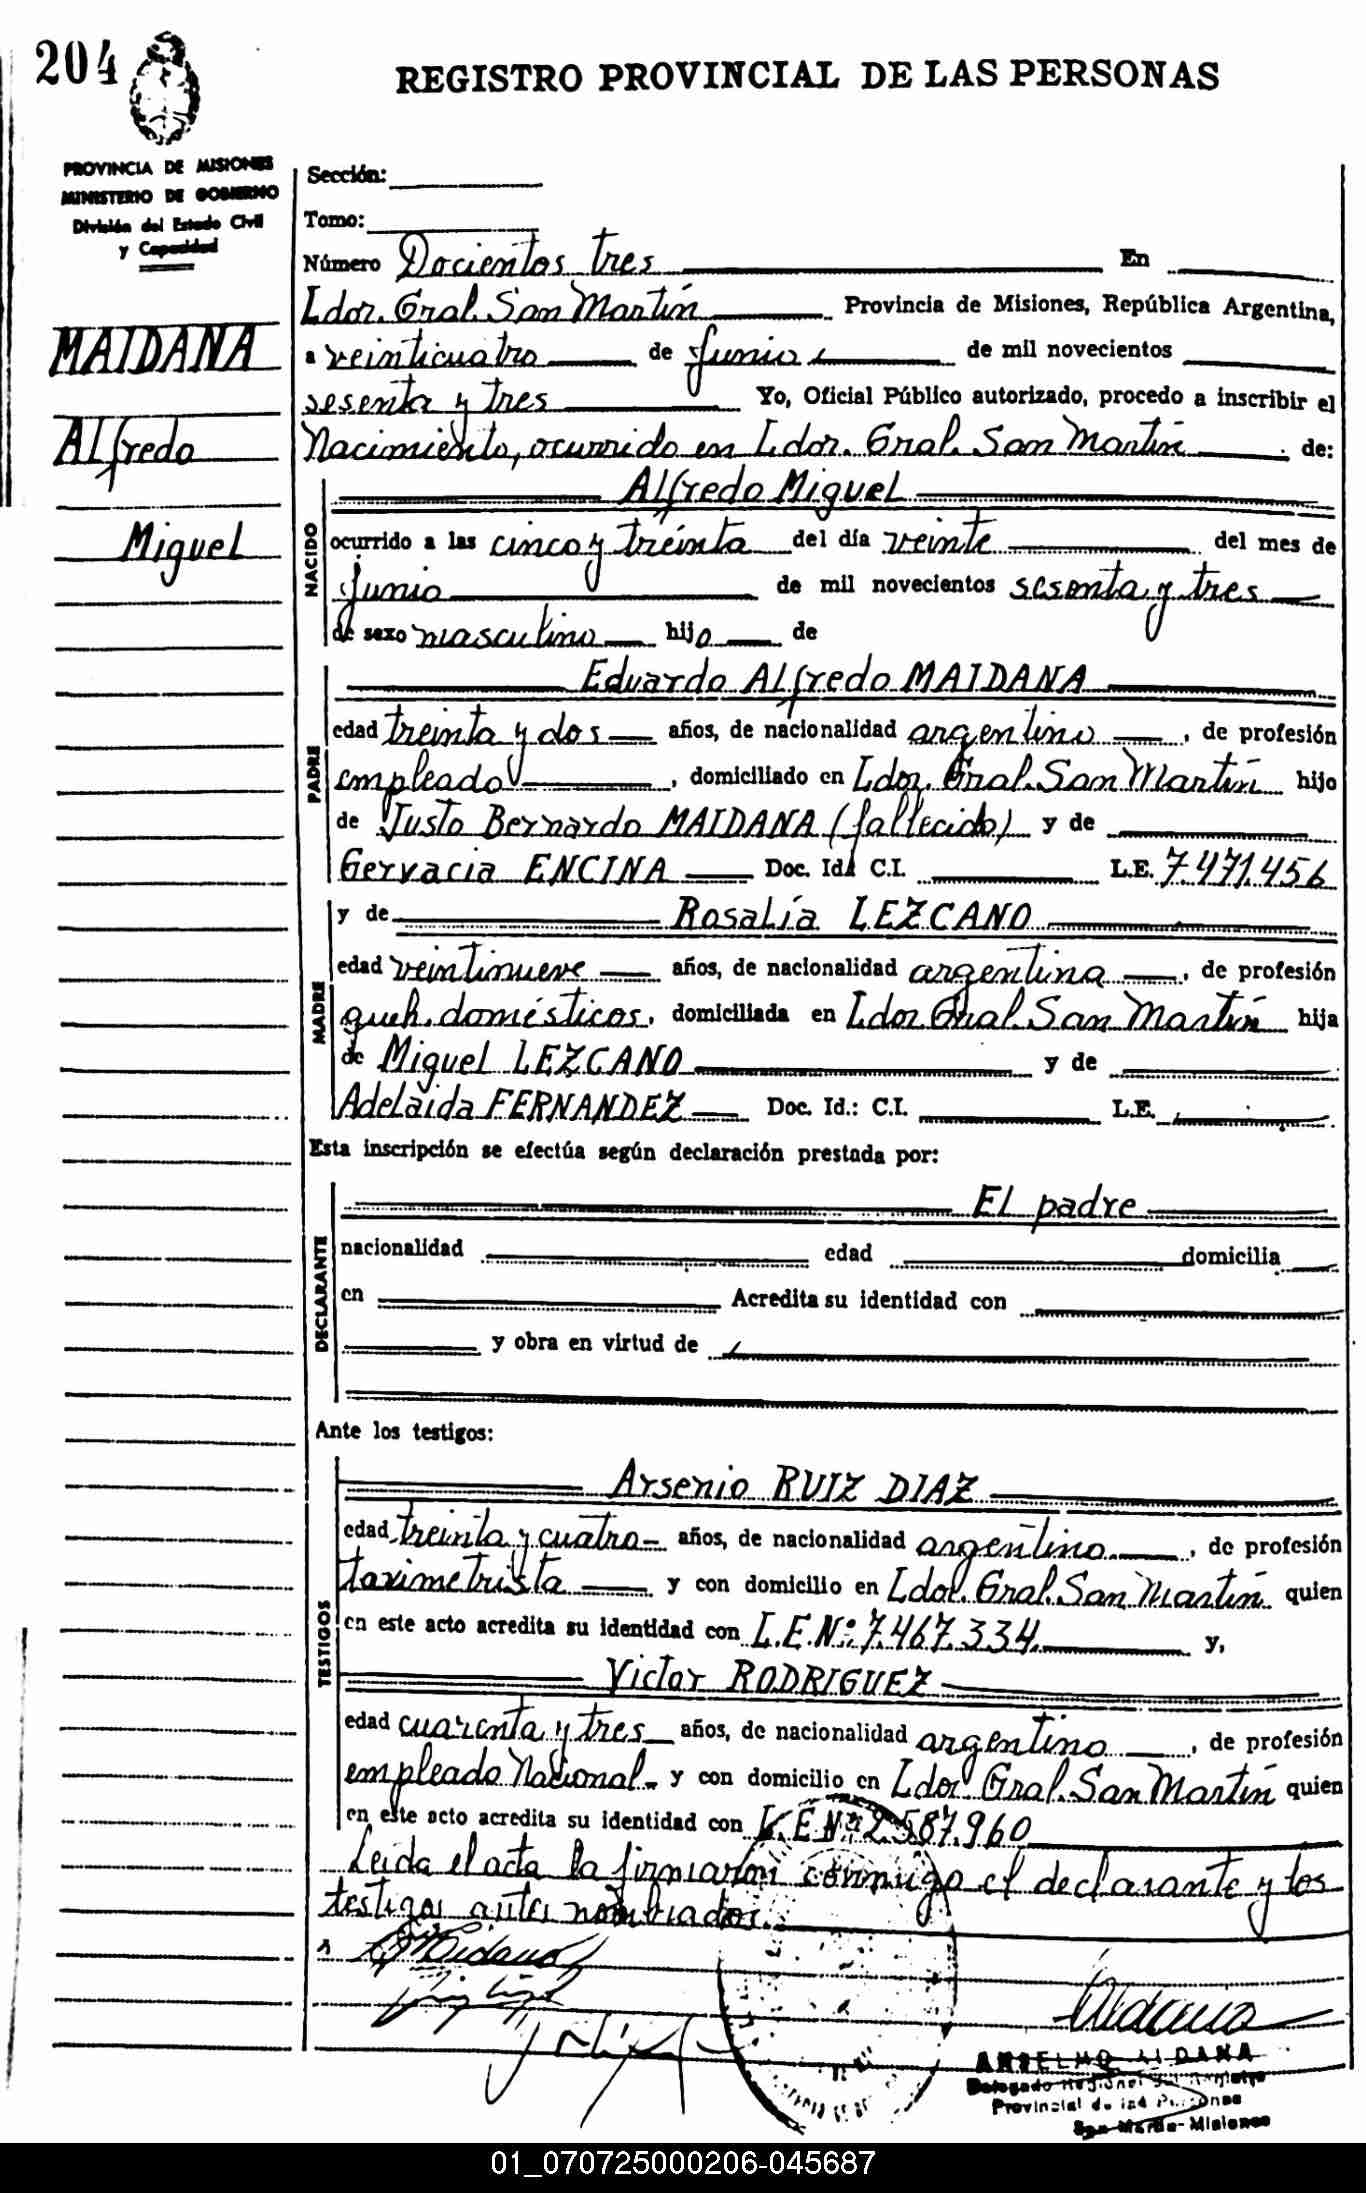 204
REGISTRO PROVINCIAL DE LAS PERSONAS
PROVINCIA DE MISIONES
MINISTERIO DE GOBIERNO
División del Estado Civil
y Capacidad
MAIDANA
Alfredo
Miguel
Sección:
Tomo:
Número Docientos tres En
Ldor. Gral. San Martín Provincia de Misiones, República Argentina,
a veinticuatro de junio de mil novecientos
sesenta y tres Yo, Oficial Público autorizado, procedo a inscribir el
Nacimiento, ocurrido en Ldor. Gral. San Martín de:
NACIDO
Alfredo Miguel
ocurrido a las cinco y treinta del día veinte del mes de
junio de mil novecientos sesenta y tres
de sexo masculino hijo de
PADRE
Eduardo Alfredo MAIDANA
edad treinta y dos años, de nacionalidad argentino, de profesión
empleado, domiciliado en Ldor. Gral. San Martín hijo
de Justo Bernardo MAIDANA (fallecido) y de
Gervacia ENCINA Doc. Id. C.I. L.E. 7.471.456
MADRE
y de Rosalía LEZCANO
edad veintinueve años, de nacionalidad argentina, de profesión
queh. domésticos, domiciliada en Ldor. Gral. San Martín hija
de Miguel LEZCANO y de
Adelaida FERNANDEZ Doc. Id.: C.I. L.E.
Esta inscripción se efectúa según declaración prestada por:
DECLARANTE
El padre
nacionalidad edad domicilia
en Acredita su identidad con
y obra en virtud de
Ante los testigos:
TESTIGOS
Arsenio RUIZ DIAZ
edad treinta y cuatro años, de nacionalidad argentino, de profesión
taximetrista y con domicilio en Ldor. Gral. San Martín quien
en este acto acredita su identidad con L.E.Nº: 7.467.334 y,
Victor RODRIGUEZ
edad cuarenta y tres años, de nacionalidad argentino, de profesión
empleado Nacional y con domicilio en Ldor. Gral. San Martín quien
en este acto acredita su identidad con L.E.Nº 2.587.960
Leída el acta la firmaron conmigo el declarante y los
testigos antes nombrados.
ANSELMO ALDANA
Delegado Regional del Registro
Provincial de las Personas
San Martín - Misiones
01_070725000206-045687